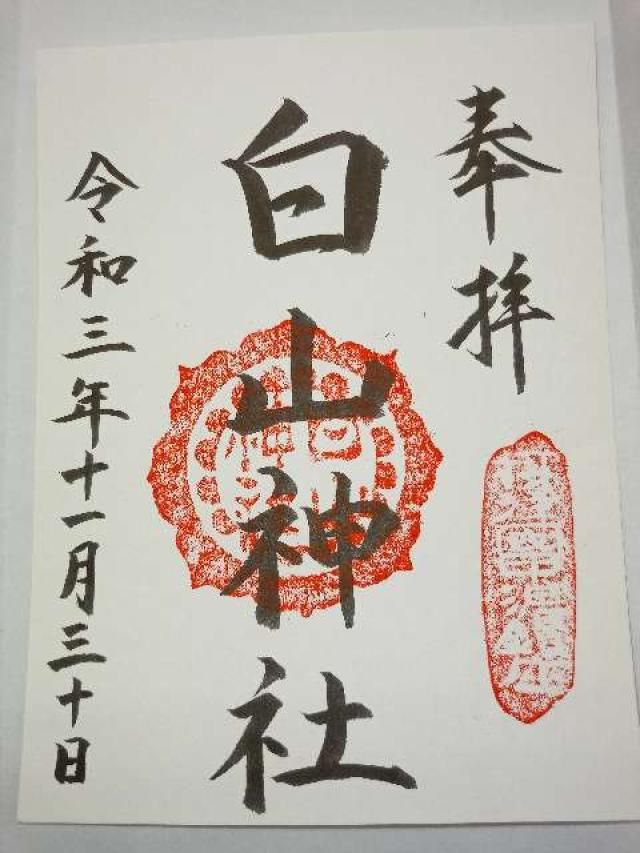 奉拝
白山神社
令和三年十一月三十日